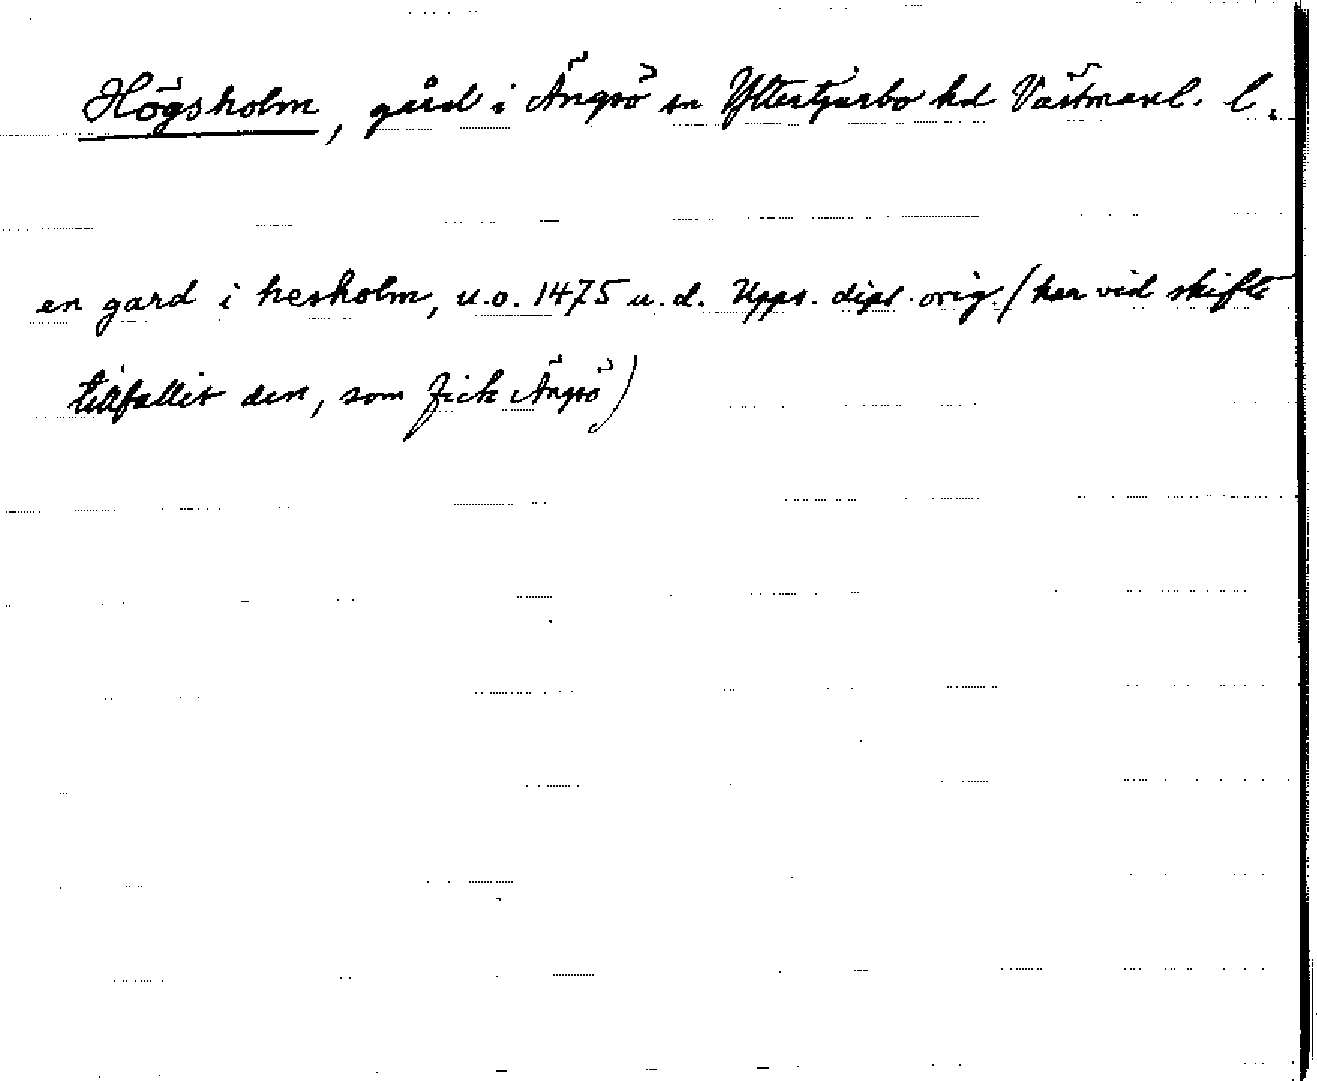 Högsholm, gård i Ängsö sn Yttertjurbo hd Västmanl. l.
en gard i hesholm, u.o. 1475 u.d. Upps. dipl. orig. (har vid skifte
tillfallit den, som fick Ängsö)